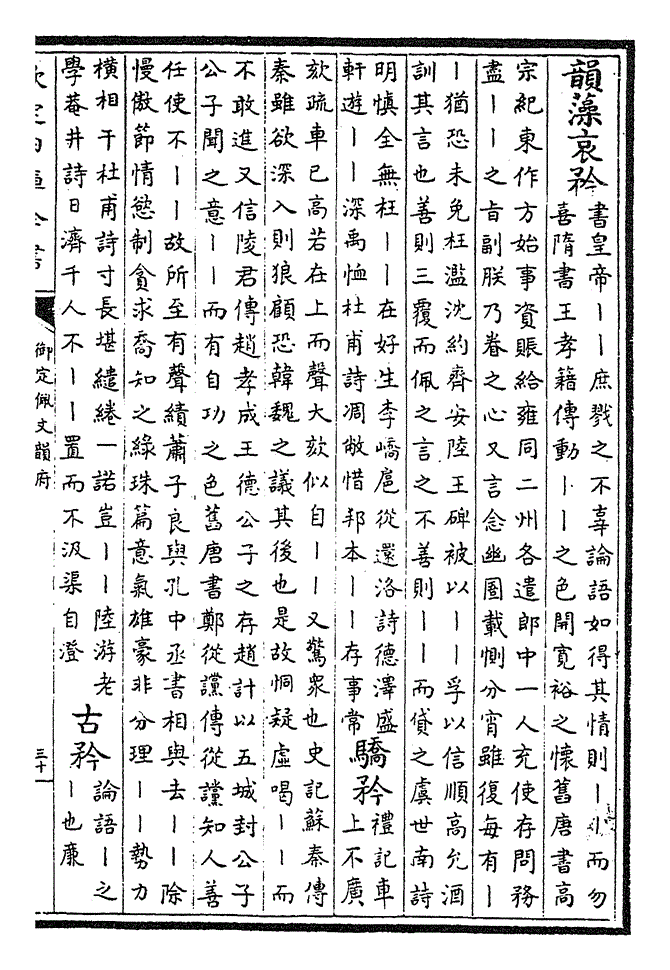 韻藻哀矜
書皇帝〡〡庶戮之不辜論語如得其情則〡〡而勿
喜隋書王孝籍傳動〡〡之色開寬裕之懷舊唐書高
宗紀東作方始事資賑給雍同二州各遣郎中一人充使存問務
盡〡〡之旨副朕乃眷之心又言念幽圄載惻分宵雖復每有〡
〡猶恐未免枉濫沈約齊安陸王碑被以〡〡孚以信順高允酒
訓其言也善則三覆而佩之言之不善則〡〡而貸之虞世南詩
明慎全無枉〡〡在好生李嶠扈從還洛詩德澤盛
軒遊〡〡深禹恤杜甫詩凋敝惜邦本〡〡存事常
驕矜
禮記車
上不廣
欬疏車已高若在上而聲大欬似自〡〡又驚衆也史記蘇秦傳
秦雖欲深入則狼顧恐韓魏之議其後也是故恫疑虛喝〡〡而
不敢進又信陵君傳趙孝成王德公子之存趙計以五城封公子
公子聞之意〡〡而有自功之色舊唐書鄭從讜傳從讜知人善
任使不〡〡故所至有聲績蕭子良與孔中丞書相與去〡〡除
慢傲節情慾制貪求喬知之綠珠篇意氣雄豪非分理〡〡勢力
橫相干杜甫詩寸長堪繾綣一諾豈〡〡陸游老
學菴井詩日濟千人不〡〡置而不汲渠自澄
古矜
論語〡之
〡也廉
欽定四庫全書
御定佩文韻府
三十